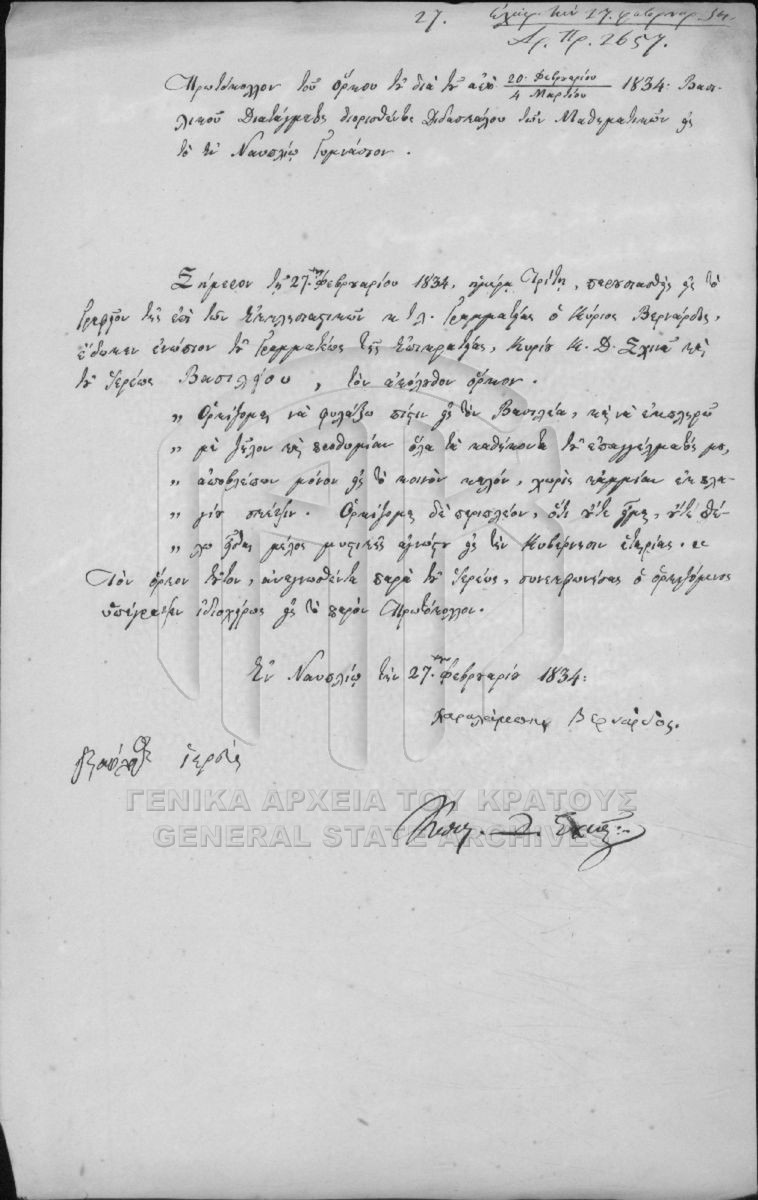 27.
Ἐλήφ. τὴν 27. φεβρουαρ. 34.
Ἀρ. Πρ. 2657.
Πρωτόκολλον τοῦ ὅρκου τοῦ διὰ τοῦ ἀπὸ 20 Φεβρουαρίου / 4 Μαρτίου 1834: Βασι-
λικοῦ Διατάγματος διορισθέντος Διδασκάλου τῶν Μαθηματικῶν εἰς
τὸ ἐν Ναυπλίῳ Γυμνάσιον.
Σήμερον τῇ 27ῃ Φεβρουαρίου 1834, ἡμέρᾳ Τρίτῃ, παρουσιασθεὶς εἰς τὸ
Γραφεῖον τῆς ἐπὶ τῶν Ἐκκλησιαστικῶν κτλ. Γραμματείας ὁ Κύριος Βερνάρδος,
ἔδωκεν ἐνώπιον τοῦ Γραμματέως τῆς Ἐπικρατείας, Κυρίου Κ. Δ. Σχινᾶ καὶ
τοῦ Ἱερέως Βασιλείου, τὸν ἀκόλουθον ὅρκον.
„ Ὁρκίζομαι νὰ φυλάξω πίστιν εἰς τὸν Βασιλέα, καὶ νὰ ἐκπληρῶ
„ μὲ ζῆλον καὶ προθυμίαν ὅλα τὰ καθήκοντα τοῦ ἐπαγγέλματός μου,
„ ἀποβλέπων μόνον εἰς τὸ κοινὸν καλόν, χωρὶς καμμίαν ἐκ πλα-
„ γίου σκέψιν. Ὁρκίζομαι δὲ περιπλέον, ὅτι οὔτε εἶμαι, οὔτε θέ-
„ λω εἶσθαι μέλος μυστικῆς ἀγνώστου εἰς τὴν Κυβέρνησιν ἑταιρίας. „
Τὸν ὅρκον τοῦτον, ἀναγνωσθέντα παρὰ τοῦ Ἱερέως, συνεκφωνήσας ὁ ὁρκιζόμενος
ὑπέγραψεν ἰδιοχείρως εἰς τὸ παρὸν Πρωτόκολλον.
Ἐν Ναυπλίῳ τὴν 27ην Φεβρουαρίου 1834:
Χαραλάμπης Βερνάρδος.
ἱερεὺς
Κωνστ. Δ. Σχινᾶς
ΓΕΝΙΚΑ ΑΡΧΕΙΑ ΤΟΥ ΚΡΑΤΟΥΣ
GENERAL STATE ARCHIVES